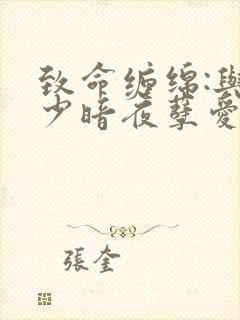 致命缠绵:與
少暗夜孽愛
張奎